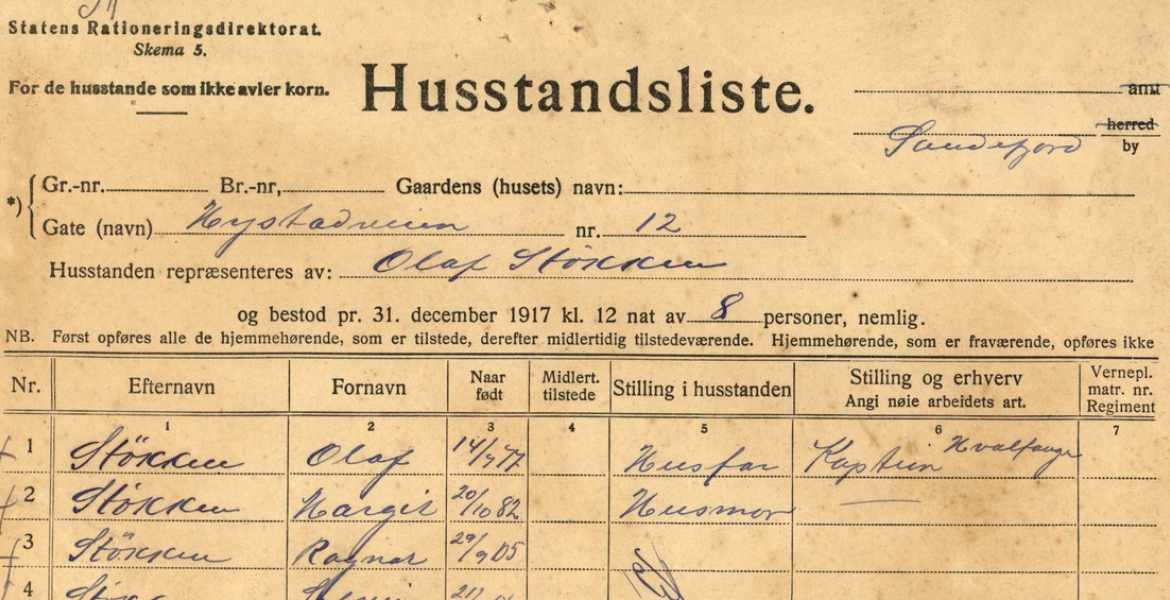 Statens Rationeringsdirektorat.
Skema 5.
For de husstande som ikke avler korn.
Husstandsliste.
amt
herred
Sandefjord by
*) Gr.-nr. Br.-nr. Gaardens (husets) navn:
Gate (navn) Hystadveien nr. 12
Husstanden repræsenteres av: Olaf Stökken
og bestod pr. 31. december 1917 kl. 12 nat av 8 personer, nemlig.
NB. Først opføres alle de hjemmehørende, som er tilstede, derefter midlertidig tilstedeværende. Hjemmehørende, som er fraværende, opføres ikke
Nr. Efternavn Fornavn Naar født Midlert. tilstede Stilling i husstanden Stilling og erhverv Angi nøie arbeidets art. Vernepl. matr. nr. Regiment
1 2 3 4 5 6 7
1 Stökken Olaf 14/7 77 Husfar Kaptein Hvalfanger
2 Stökken Margit 20/10 82 Husmor —
3 Stökken Ragnar 29/9 05
4